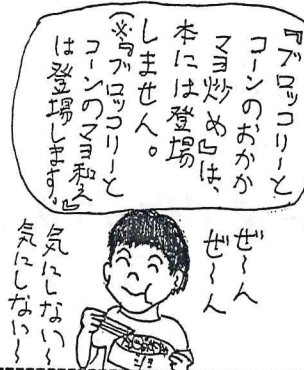 『ブロッコリーと
コーンのおかか
マヨ炒め』は、
本には登場
しません。
(※『ブロッコリーと
コーンのマヨ和え』
は登場します。)
ぜ〜ん
ぜ〜ん
気にしない〜
気にしない〜